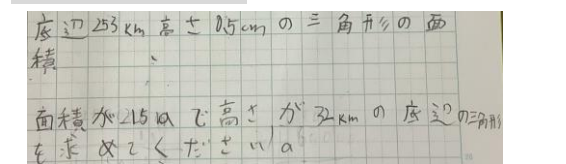 底辺253km高さ0.5cmの三角形の面
積
面積が215aで高さが32kmの底辺の三角形
を求めてください。